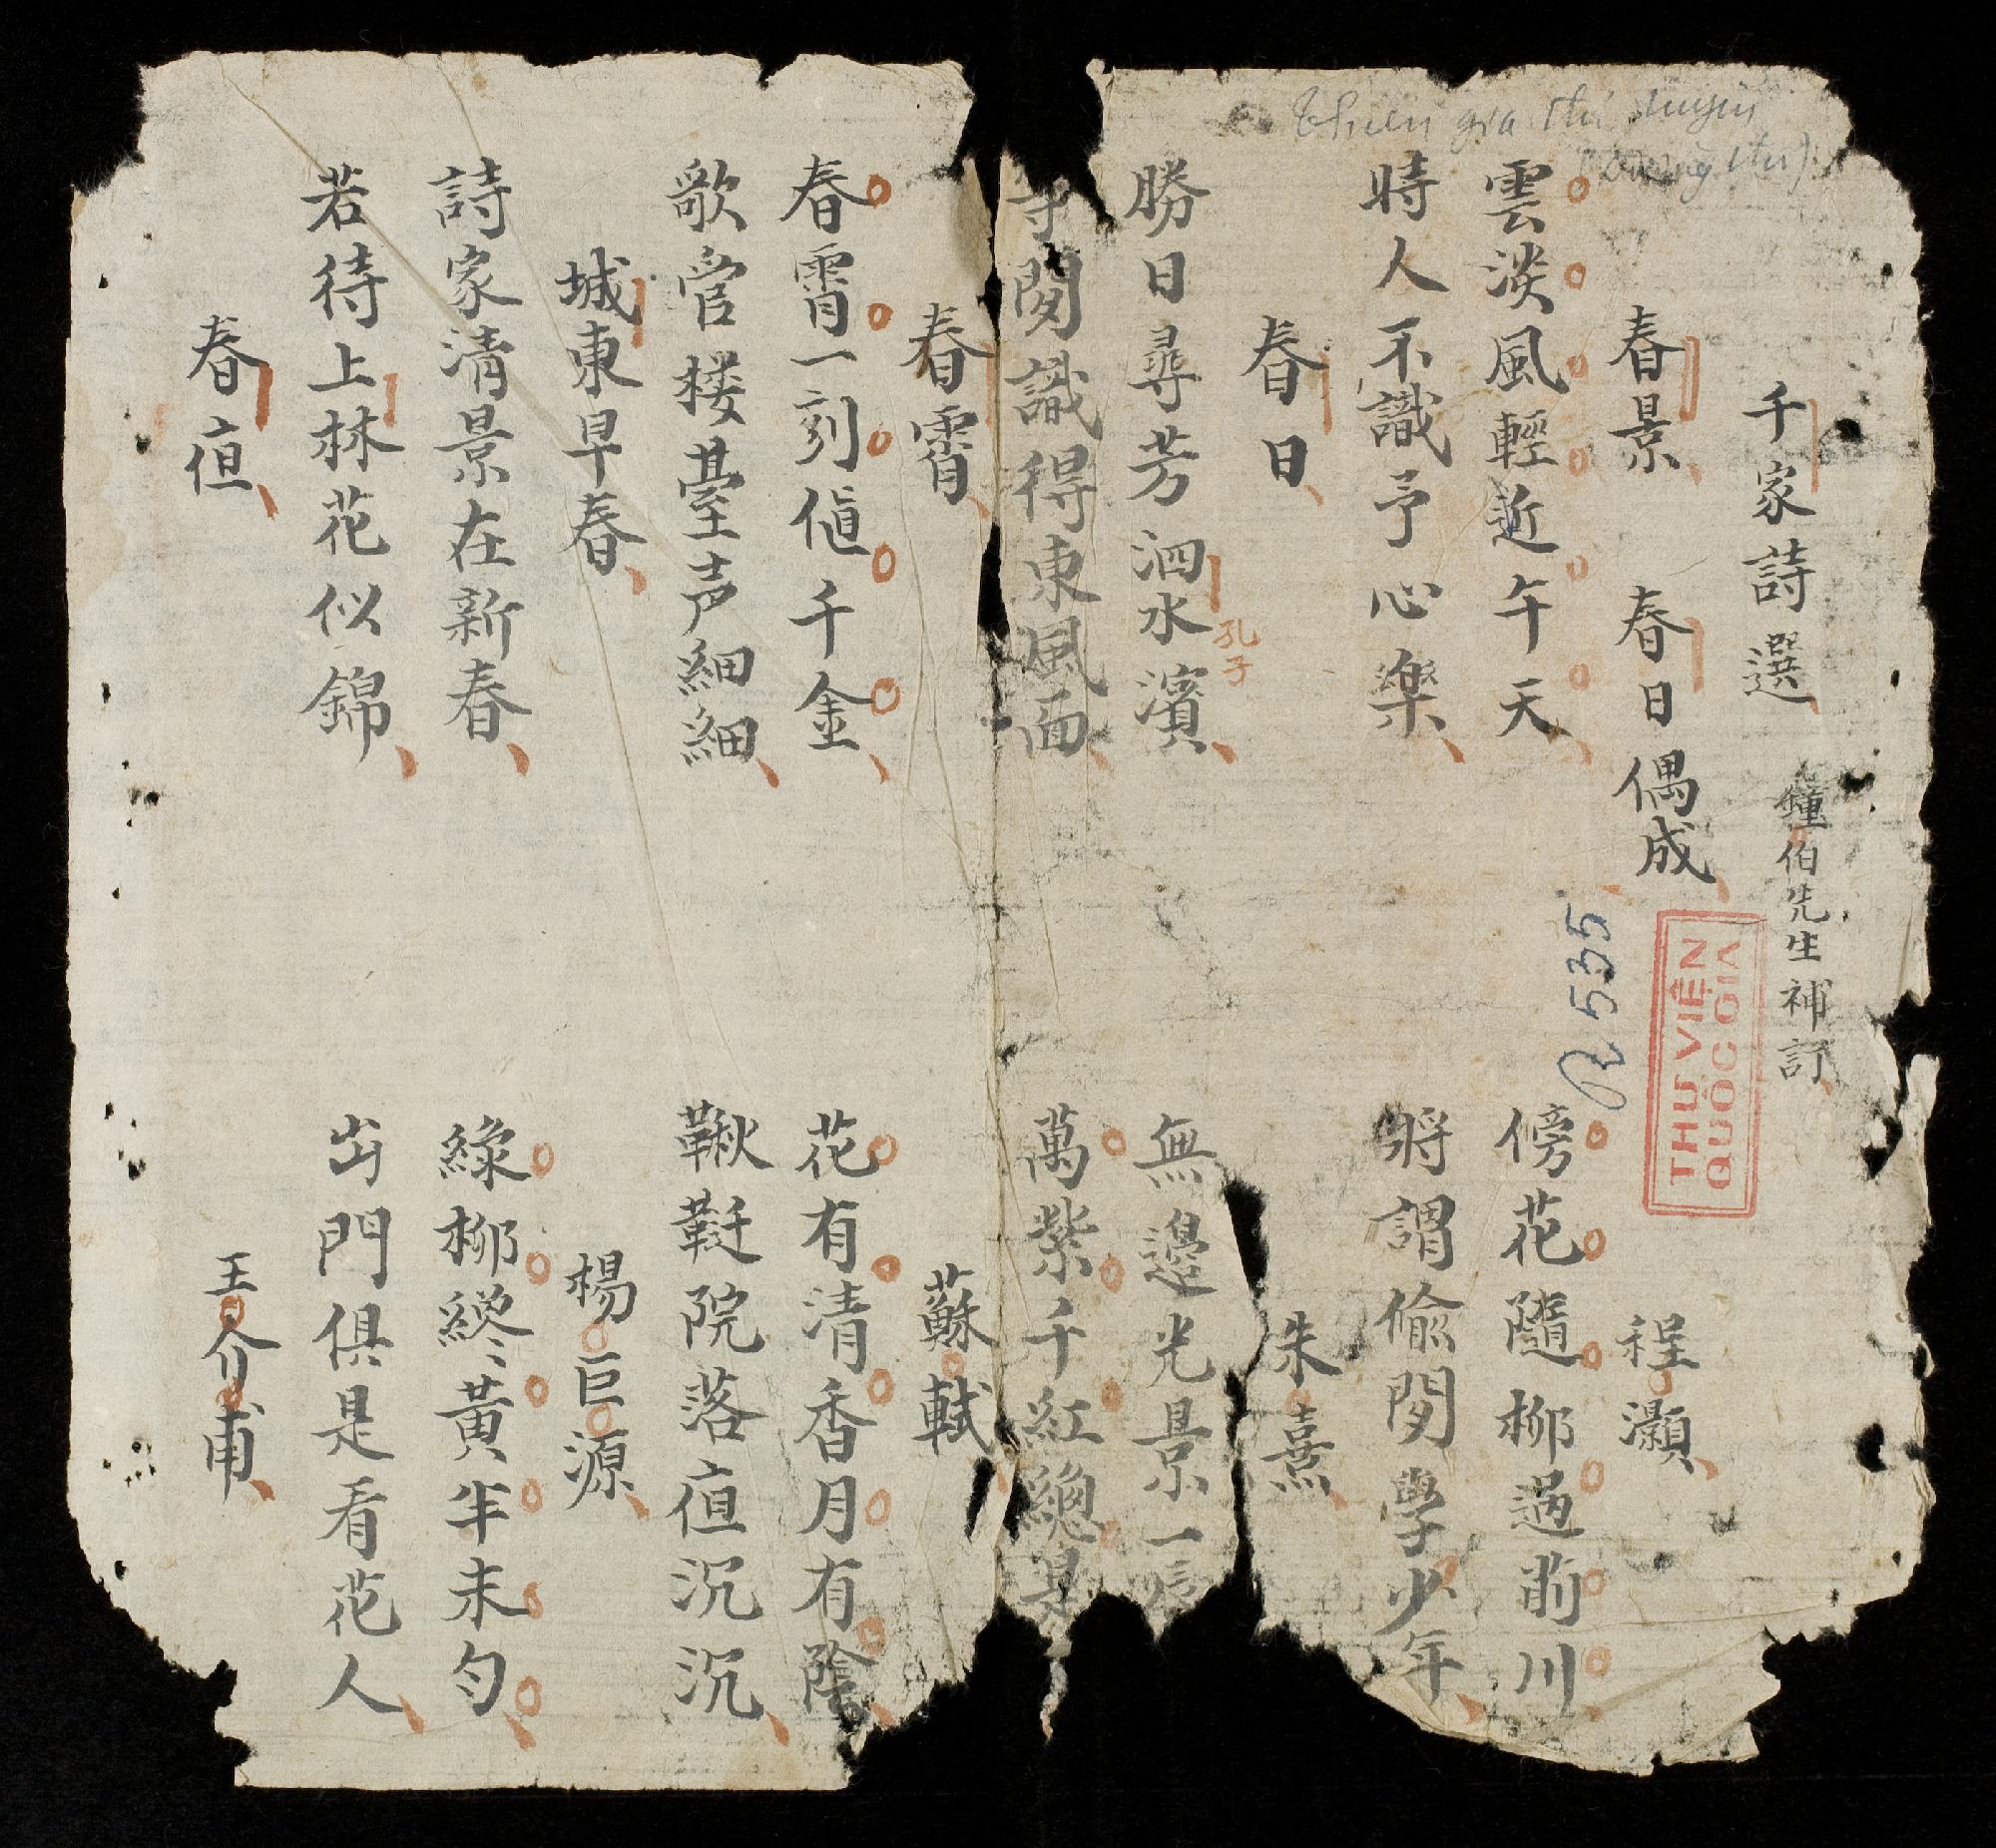 千家詩選 鐘伯先生補訂
春景 春日偶成 程灝
雲淡風輕近午天 傍花隨柳過前川
時人不識予心樂 將謂偷閒學少年
春日 朱熹
勝日尋芳泗水濱 無邊光景一
孔子
閒識得東風面 萬紫千紅總是
春霄 蘇軾
春霄一刻値千金 花有清香月有陰
歌管楼臺声細細 鞦韆院落夜沉沉
城東早春 楊巨源
詩家清景在新春 綠柳纔黃半未勻
若待上林花似錦 出門俱是看花人
春夜 王介甫
Thiên gia thi tuyển
R 535
THƯ VIỆN
QUỐC GIA